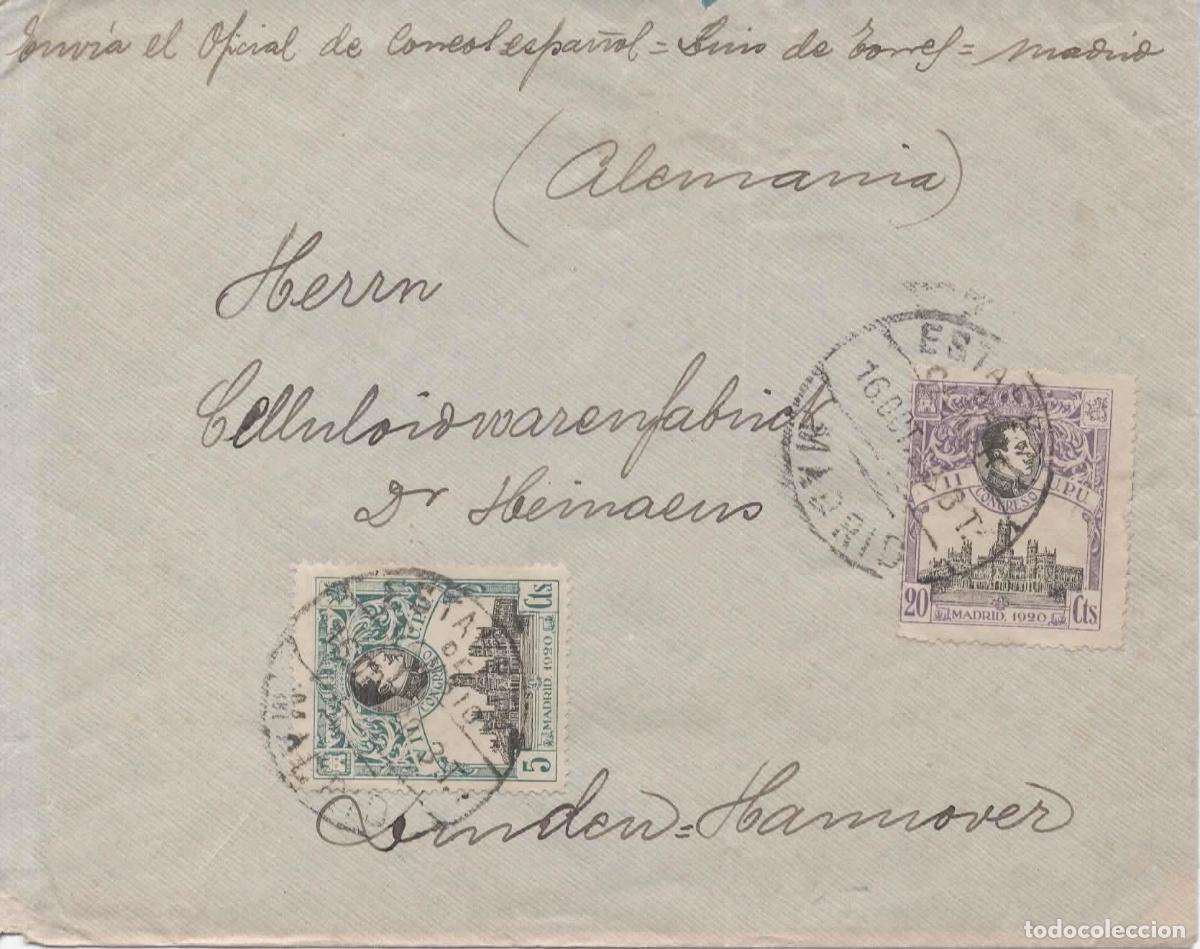 Envía el Oficial de Correos español = Luis de Torres = Madrid
(Alemania)
Herrn
Celluloidwarenfabrick
Dr Heinaeus
Linden = Hannover
ESTAF
16 OCT
MADRID
VII CONGRESO U.P.U.
20 Cts
MADRID, 1920
VII CONGRESO U.P.U.
5 Cts
MADRID, 1920
todocoleccion